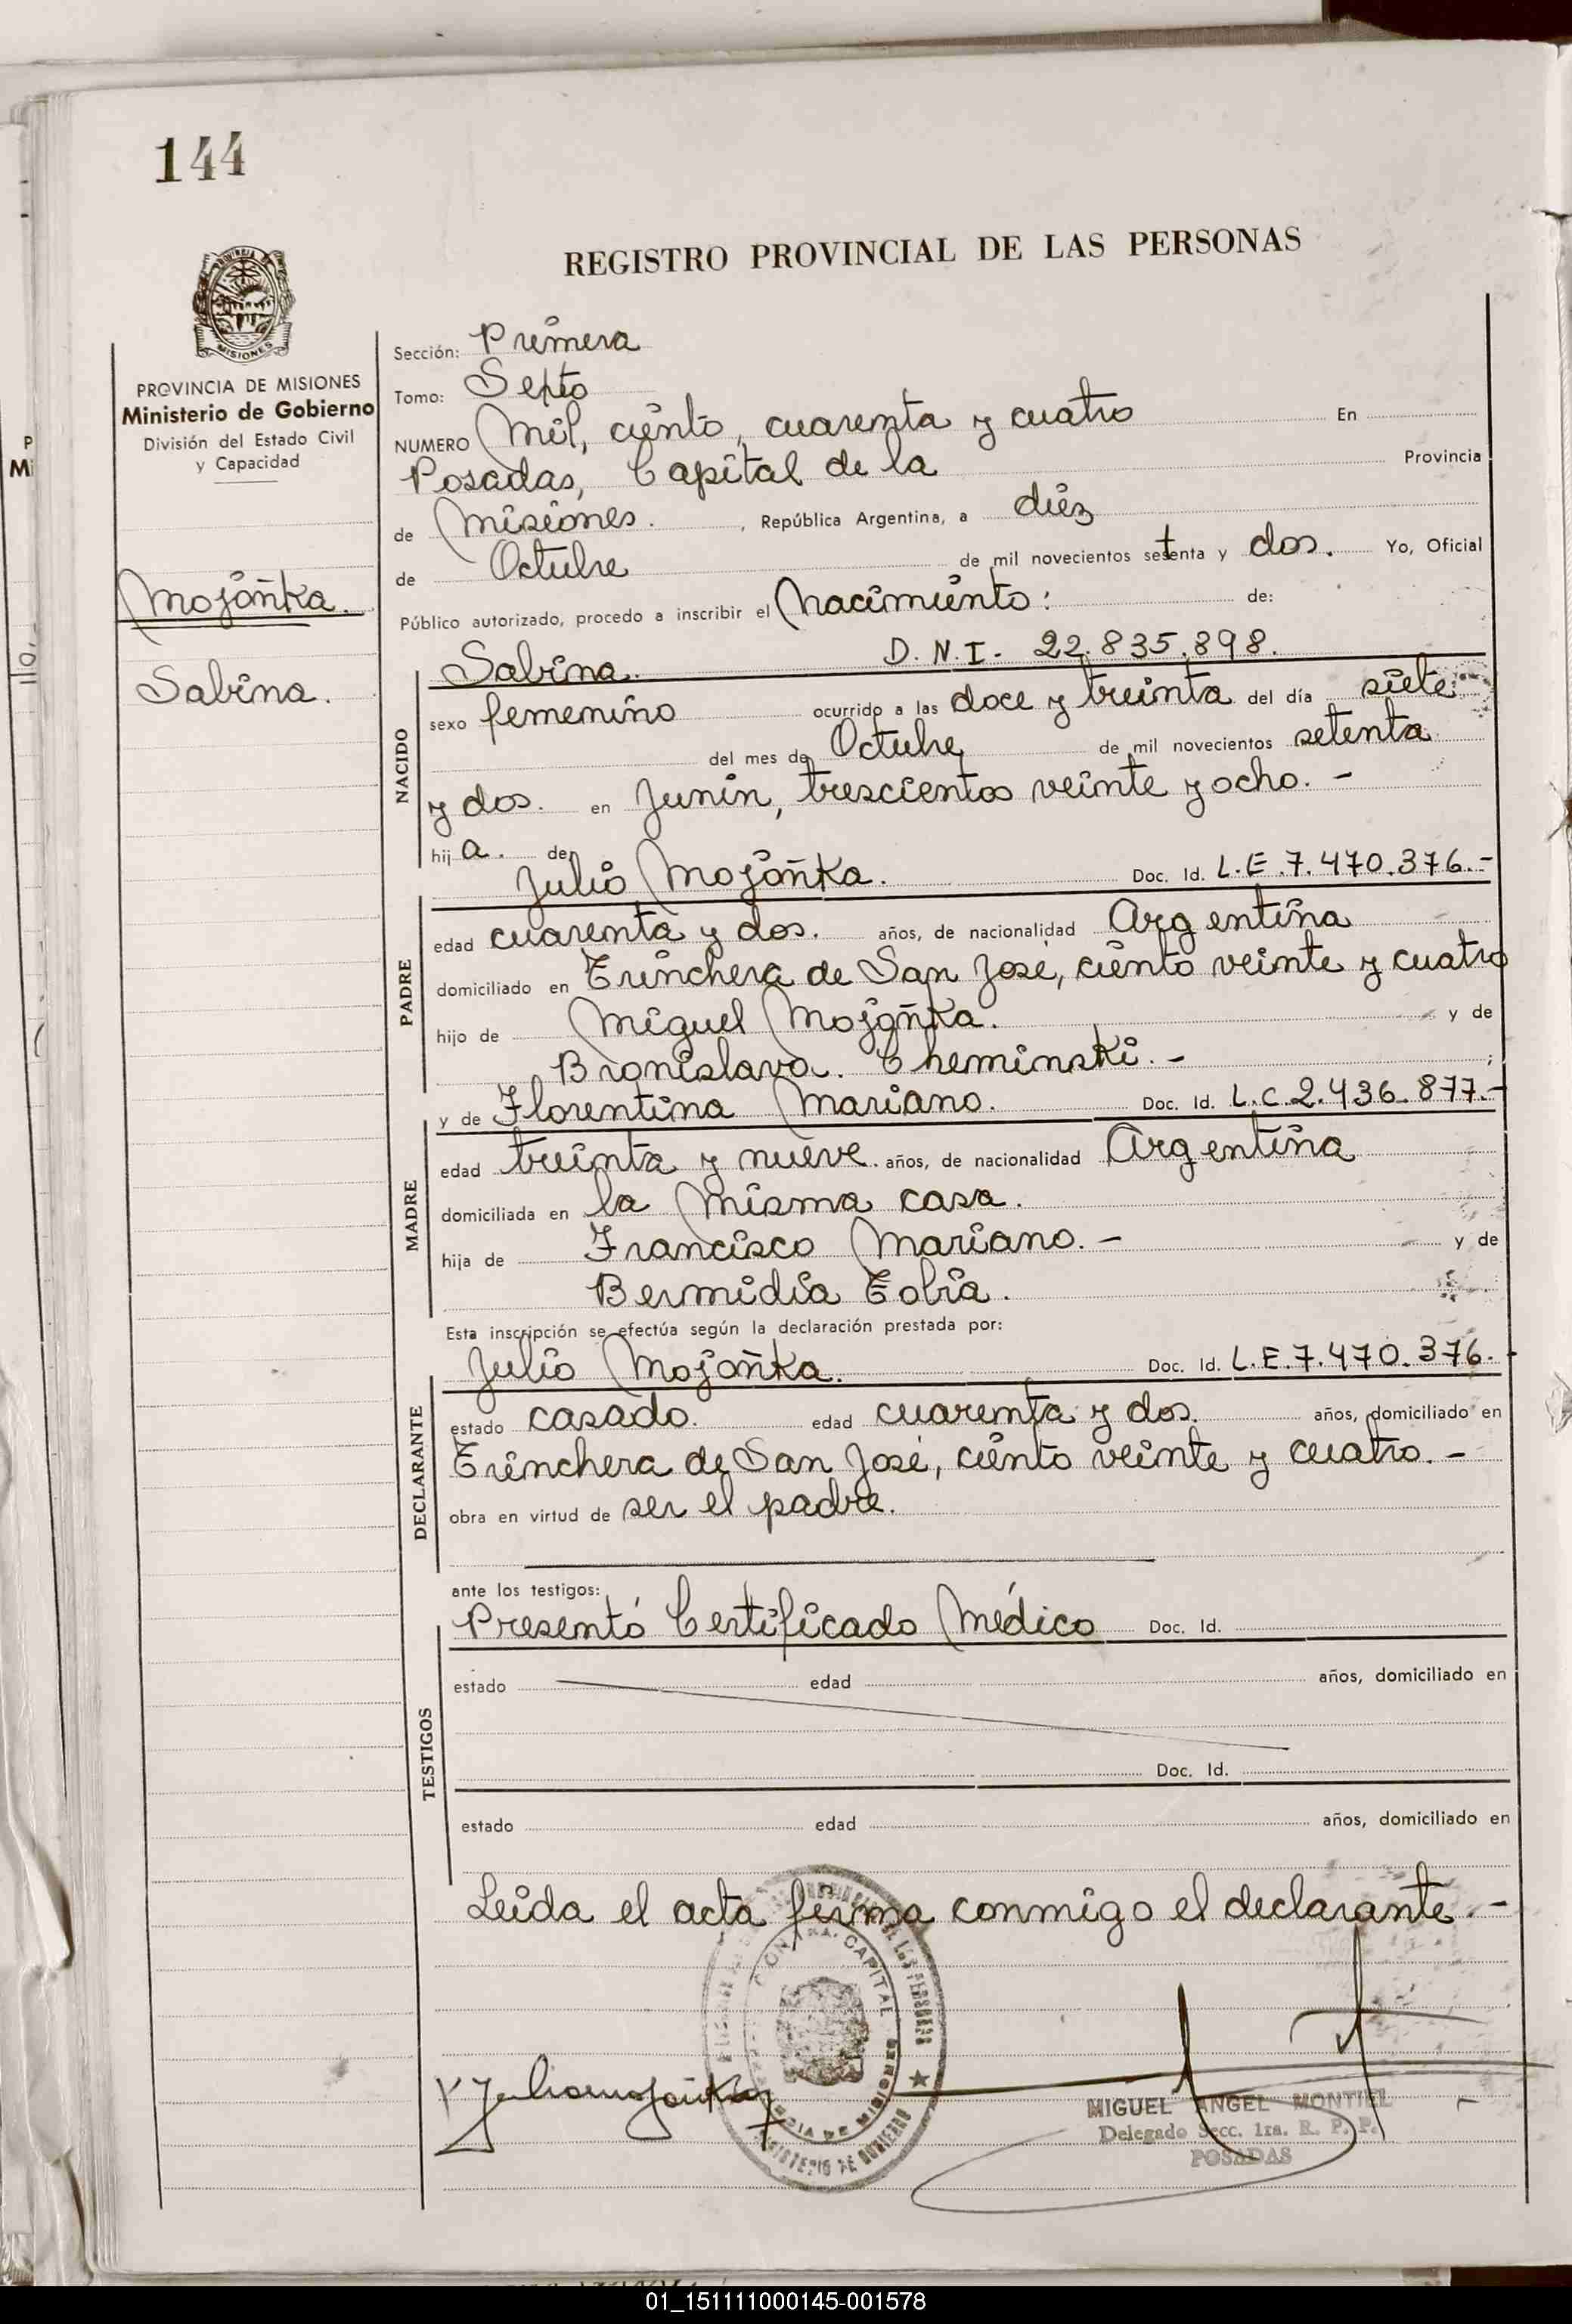 144
REGISTRO PROVINCIAL DE LAS PERSONAS
MISIONES
PROVINCIA DE MISIONES
Ministerio de Gobierno
División del Estado Civil
y Capacidad
Mojoñka.
Sabina.
Sección: Primera
Tomo: Septo
NUMERO Mil, ciento, cuarenta y cuatro En
Posadas, Capital de la Provincia
de Misiones. , República Argentina, a diez
de Octubre de mil novecientos setenta y dos. Yo, Oficial
Público autorizado, procedo a inscribir el Nacimiento: de:
Sabina. D.N.I. 22.835.898.
NACIDO
sexo femenino ocurrido a las doce y treinta del día siete
del mes de Octubre de mil novecientos setenta
y dos. en Junin, trescientos veinte y ocho. -
hij a. de
Julio Mojoñka. Doc. Id. L.E.7.470.376.-
PADRE
edad cuarenta y dos. años, de nacionalidad Argentina
domiciliado en Trinchera de San José, ciento veinte y cuatro
hijo de Miguel Mojoñka. y de
Bronislava. Cheminski. - ;
y de Florentina Mariano. Doc. Id. L.C.2.436.877.-
MADRE
edad treinta y nueve. años, de nacionalidad Argentina
domiciliada en la misma casa.
hija de Francisco Mariano. - y de
Bermidia Tobia.
Esta inscripción se efectúa según la declaración prestada por:
Julio Mojoñka. Doc. Id. L.E.7.470.376.
DECLARANTE
estado casado. edad cuarenta y dos. años, domiciliado en
Trinchera de San José, ciento veinte y cuatro. -
obra en virtud de ser el padre.
ante los testigos:
Presentó Certificado Médico Doc. Id.
TESTIGOS
estado edad años, domiciliado en
Doc. Id.
estado edad años, domiciliado en
Leida el acta firma conmigo el declarante. -
MIGUEL ANGEL MONTIEL
Delegado Secc. 1ra. R. P. P.
POSADAS
01_151111000145-001578